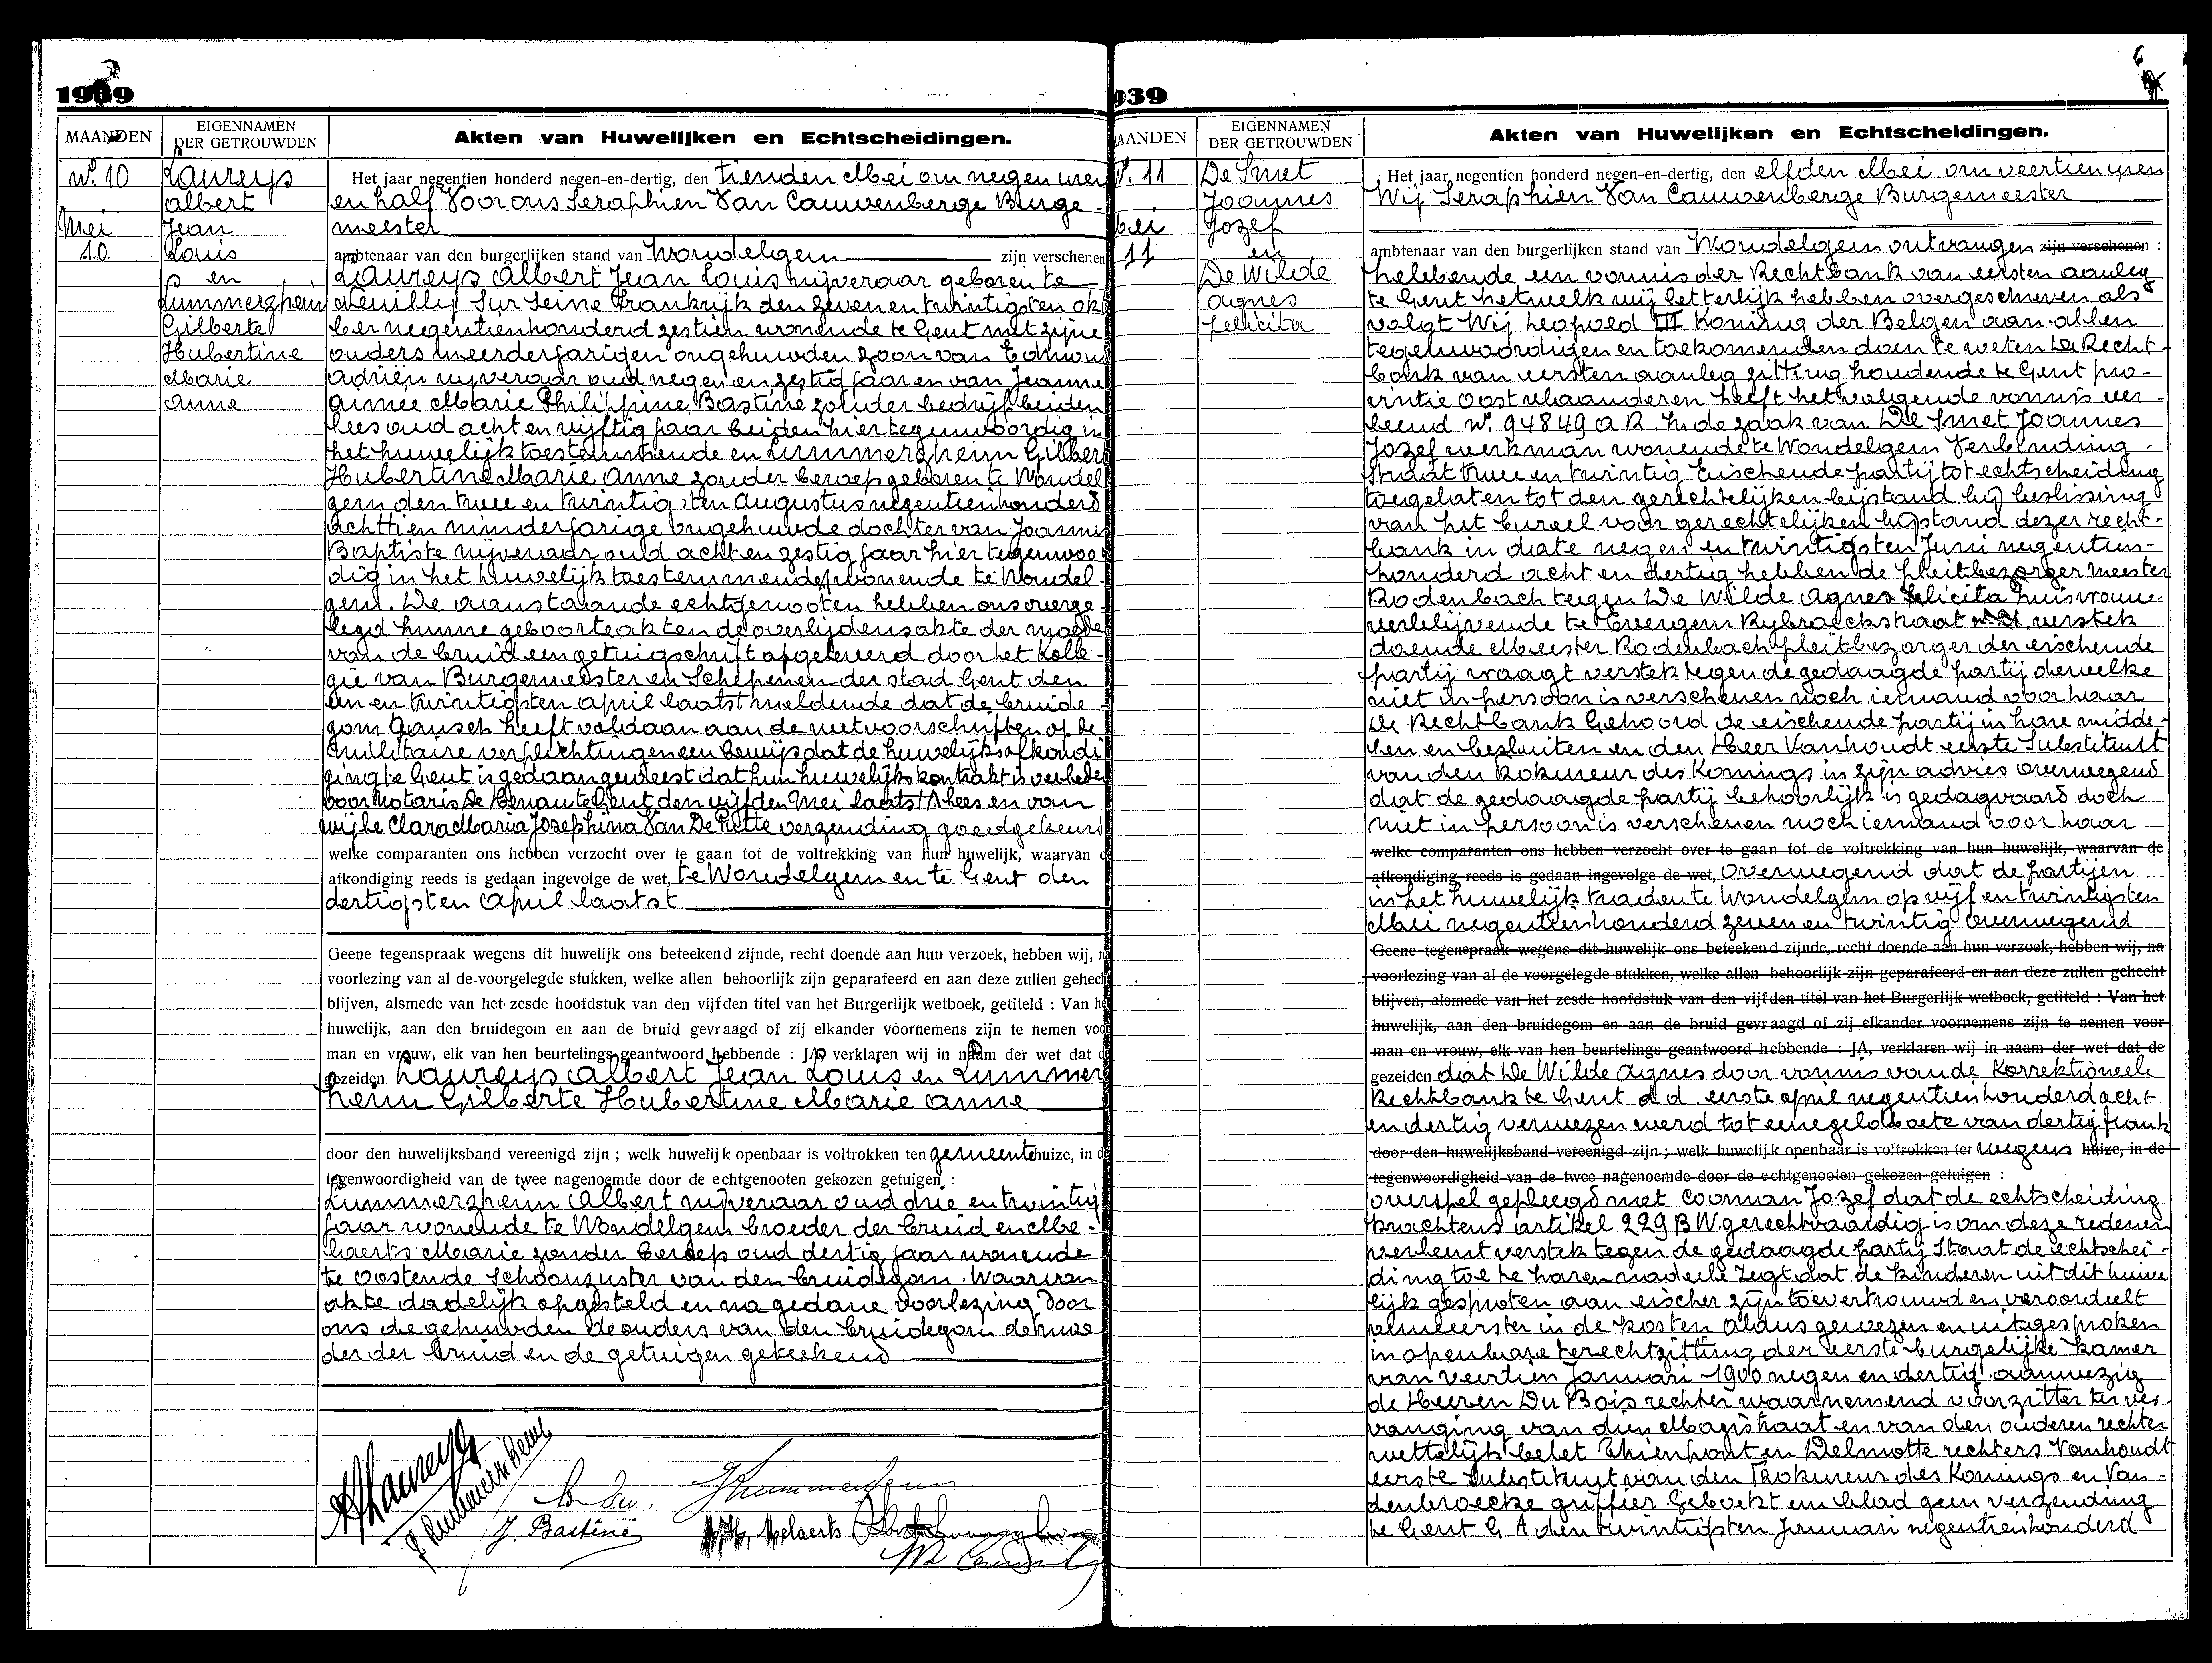 1939
MAANDEN
EIGENNAMEN
DER GETROUWDEN
Akten van Huwelijken en Echtscheidingen.
N. 10
Mei
10.
Laureys
Albert
Jean
Louis
en
Lummerzheim
Gilberte
Hubertine
Marie
Anne
Het jaar negentien honderd negen-en-dertig, den tienden Mei om negen uren
en half Voor ons Seraphien Van Cauwenberge Burge-
meester
ambtenaar van den burgerlijken stand van Wondelgem zijn verschenen
Laureys Albert Jean Louis nijveraar geboren te
Neuilly Sur Seine Frankrijk den zeven en twintigsten okto
ber negentienhonderd zestien wonende te Gent met zijne
ouders meerderjarigen ongehuwden zoon van Edmond
Adrien nijveraar oud negen en zestig jaar en van Jeanne
Aimée Marie Philippine Bastiné zonder bedrijf beiden
lees oud acht en vijftig jaar beiden hier tegenwoordig in
het huwelijk toestemmende en Lummerzheim Gilbert
Hubertine Marie Anne zonder beroep geboren te Wondel
gem den twee en twintigsten Augustus negentienhonderd
achttien minderjarige ongehuwde dochter van Joannes
Baptiste nijveraar oud acht en zestig jaar hier tegenwoor
dig in het huwelijk toestemmende wonende te Wondel-
gem. De aanstaande echtgenooten hebben ons overge-
legd hunne geboorteakten de overlijdensakte der moeder
van de bruid een getuigschrift afgeleverd door het Kolle-
gie van Burgemeester en Schepenen der stad Gent den
een en twintigsten April laatst meldende dat de bruide-
gom heeft voldaan aan de wetvoorschriften op de
militaire verplichtingen een bewijs dat de huwelijksafkondi
ging te Gent is gedaan geweest dat hun huwelijkskontrakt is verleden
voor Notaris De Henau te Gent den vijfden Mei laatst / lees en van
wijle Clara Maria Josephina Van De Putte verzending goedgekeurd
welke comparanten ons hebben verzocht over te gaan tot de voltrekking van hun huwelijk, waarvan de
afkondiging reeds is gedaan ingevolge de wet, te Wondelgem en te Gent den
dertigsten April laatst
Geene tegenspraak wegens dit huwelijk ons beteekend zijnde, recht doende aan hun verzoek, hebben wij, na
voorlezing van al de voorgelegde stukken, welke allen behoorlijk zijn geparafeerd en aan deze zullen gehecht
blijven, alsmede van het zesde hoofdstuk van den vijfden titel van het Burgerlijk wetboek, getiteld : Van het
huwelijk, aan den bruidegom en aan de bruid gevraagd of zij elkander voornemens zijn te nemen voor
man en vrouw, elk van hen beurtelings geantwoord hebbende : JA, verklaren wij in naam der wet dat de
gezeiden Laureys Albert Jean Louis en Lummerz
heim Gilberte Hubertine Marie Anne
door den huwelijksband vereenigd zijn ; welk huwelijk openbaar is voltrokken ten gemeentehuize, in de
tegenwoordigheid van de twee nagenoemde door de echtgenooten gekozen getuigen :
Lummerzheim Albert nijveraar oud drie en twintig
jaar wonende te Wondelgem broeder der bruid en Me-
laerts Marie zonder beroep oud dertig jaar wonende
te Oostende schoonzuster van den bruidegom. Waarvan
akte dadelijk opgesteld en na gedane voorlezing door
ons de gehuwden de ouders van den bruidegom de vader
der bruid en de getuigen geteekend.
J. Bastiné
Melaerts
939
6
MAANDEN
EIGENNAMEN
DER GETROUWDEN
Akten van Huwelijken en Echtscheidingen.
N. 11
Mei
11
De Smet
Joannes
Jozef
en
De Wilde
Agnes
Felicita
Het jaar negentien honderd negen-en-dertig, den elfden Mei om veertien uren
Wij Seraphien Van Cauwenberge Burgemeester
ambtenaar van den burgerlijken stand van Wondelgem ontvangen zijn verschenen :
hebbende een vonnis der Rechtbank van eersten aanleg
te Gent hetwelk wij letterlijk hebben overgeschreven als
volgt Wij Leopold III Koning der Belgen aan allen
tegenwoordigen en toekomenden doen te weten De Recht-
bank van eersten aanleg zitting houdende te Gent pro-
vintie Oost vlaanderen heeft het volgende vonnis ver-
leend N. 94849 A R. In de zaak van De Smet Joannes
Jozef werkman wonende te Wondelgem Verbinding-
straat twee en twintig Eischende partij tot echtscheiding
toegelaten tot den gerechtelijken bijstand bij beslissing
van het bureel voor gerechtelijken bijstand dezer recht-
bank in date negen en twintigsten Juni negentien-
honderd acht en dertig hebben de pleitbezorger meester
Rodenbach tegen De Wilde Agnes Felicita huisvrouw
verblijvende te Evergem Rybroeckstraat verstek
doende Meester Rodenbach pleitbezorger der eischende
partij vraagt verstek tegen de gedaagde partij dewelke
niet in persoon is verschenen noch iemand voor haar
De Rechtbank Gehoord de eischende partij in hare midde-
len en besluiten en den Heer Vanhoudt eerste Substituut
van den Prokureur des Konings in zijn advies overwegend
dat de gedaagde partij behoorlijk is gedagvaard doch
niet in persoon is verschenen noch iemand voor haar
welke comparanten ons hebben verzocht over te gaan tot de voltrekking van hun huwelijk, waarvan de
afkondiging reeds is gedaan ingevolge de wet, Overwegend dat de partijen
in het huwelijk traden te Wondelgem op vijf en twintigsten
Mei negentienhonderd zeven en twintig overwegend
Geene tegenspraak wegens dit huwelijk ons beteekend zijnde, recht doende aan hun verzoek, hebben wij, na
voorlezing van al de voorgelegde stukken, welke allen behoorlijk zijn geparafeerd en aan deze zullen gehecht
blijven, alsmede van het zesde hoofdstuk van den vijfden titel van het Burgerlijk wetboek, getiteld : Van het
huwelijk, aan den bruidegom en aan de bruid gevraagd of zij elkander voornemens zijn te nemen voor
man en vrouw, elk van hen beurtelings geantwoord hebbende : JA, verklaren wij in naam der wet dat de
gezeiden dat De Wilde Agnes door vonnis van de Korrektioneele
Rechtbank te Gent d d. eerste april negentienhonderd acht
en dertig verwezen werd tot eene geldboete van dertig frank
door den huwelijksband vereenigd zijn ; welk huwelijk openbaar is voltrokken ter wegens huize, in de
tegenwoordigheid van de twee nagenoemde door de echtgenooten gekozen getuigen :
overspel gepleegd met Cooman Jozef dat de echtscheiding
krachtens artikel 229 B W. gerechtvaardig is om deze redenen
verleent verstek tegen de gedaagde partij Staat de echtschei-
ding toe te haren nadeele Zegt dat de kinderen uit dit huwe
lijk gesproten aan eischer zijn toevertrouwd en veroordeelt
verweerster in de kosten Aldus gewezen en uitgesproken
in openbare terechtzitting der eerste burgelijke kamer
van veertien Januari 1900 negen en dertig aanwezig
de Heeren Du Bois rechter waarnemend voorzitter ter ver-
vanging van dien Magistraat en van den ouderen rechter
wettelijk belet Thienpont en Delmotte rechters Vanhoudt
eerste Substituut van den Prokureur des Konings en Van-
denbroecke griffier Geboekt een blad geen verzending
te Gent G A den twintigsten Januari negentienhonderd